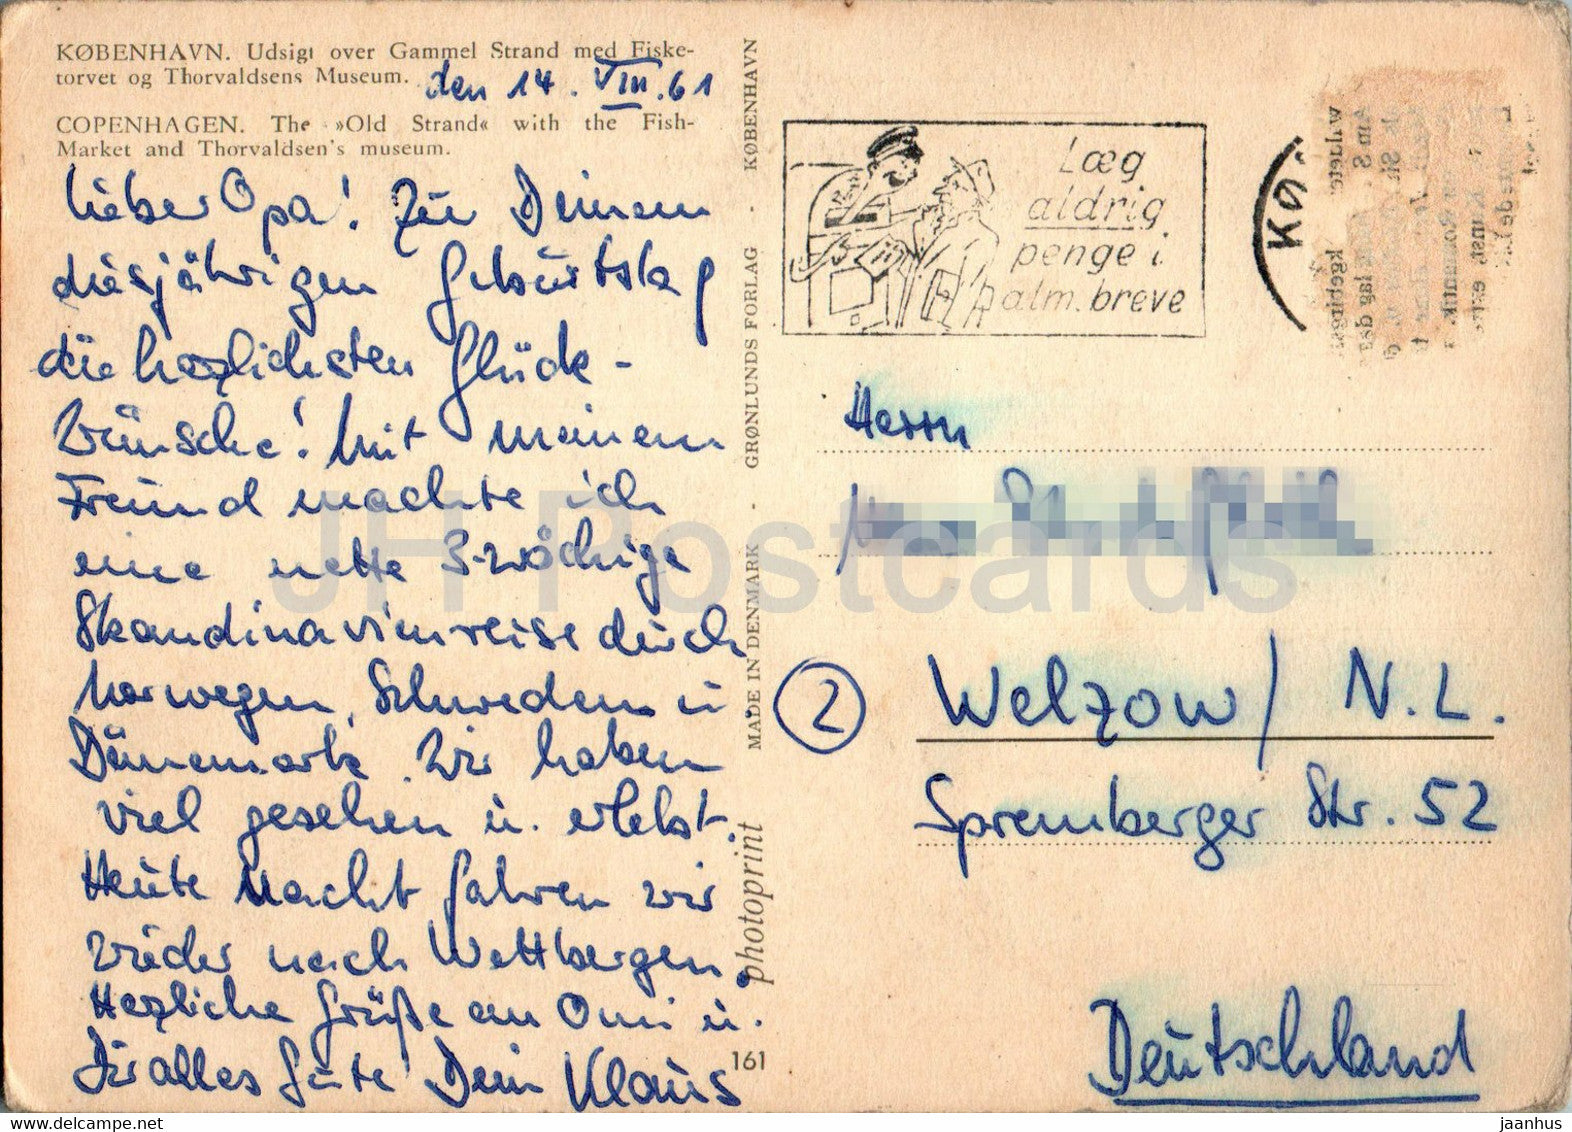 KØBENHAVN. Udsigt over Gammel Strand med Fiske-
torvet og Thorvaldsens Museum.
COPENHAGEN. The »Old Strand« with the Fish-
Market and Thorvaldsen's museum.
den 14. VIII. 61
Lieber Opa! Zu Deinem
diesjährigen Geburtstag
die herzlichsten Glück-
wünsche! Mit meinem
Freund machte ich
eine nette 3-wöchige
Skandinavienreise durch
Norwegen, Schweden u.
Dänemark. Wir haben
viel gesehen u. erlebt.
Heute Nacht fahren wir
wieder nach Wettbergen.
Herzliche Grüße an Omi u.
Dir alles Gute Dein Klaus
161
MADE IN DENMARK · GRØNLUNDS FORLAG · KØBENHAVN
photoprint
Læg
aldrig
penge i
alm. breve
KØ
Herrn
2
Welzow / N.L.
Spremberger Str. 52
Deutschland
JH Postcards
delcampe.net
jaanhus